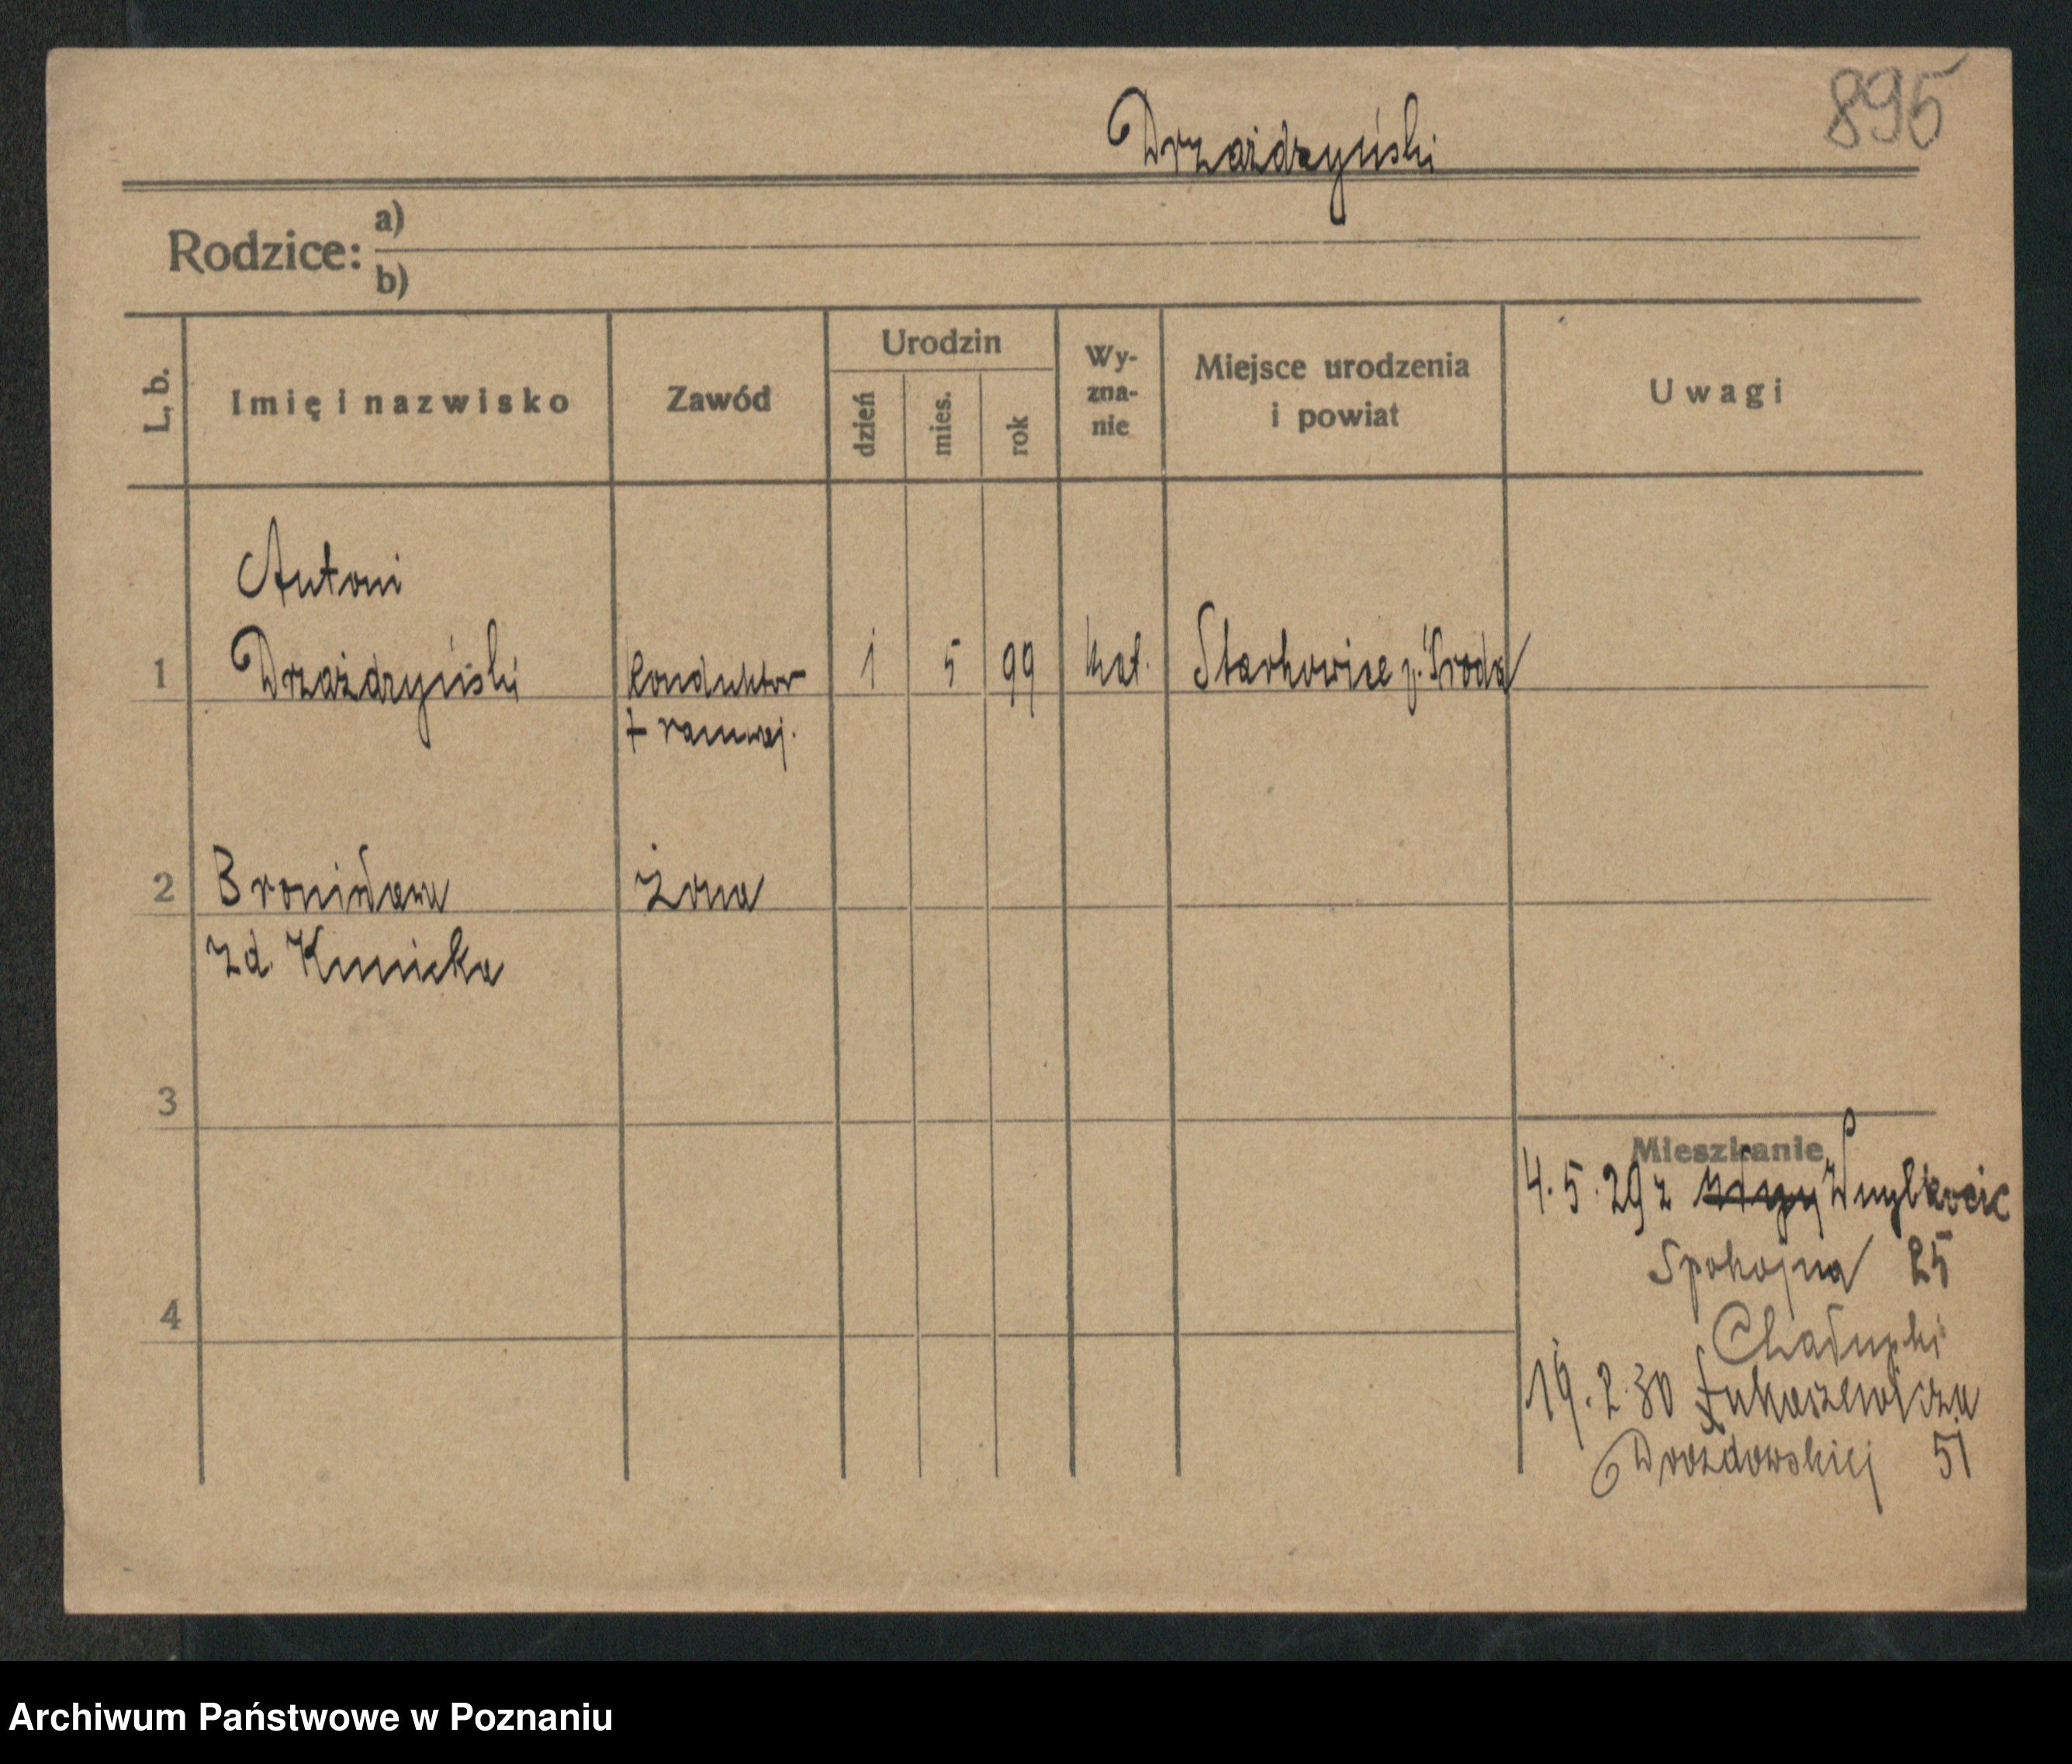 895
Drzażdzyński
Rodzice: a)
b)
L. b. Imię i nazwisko Zawód Urodzin dzień mies. rok Wy-zna-nie Miejsce urodzenia i powiat Uwagi
Antoni
1 Drzażdzyński konduktor 1 5 99 kat. p. Środa
tramwaj.
2 Bronisława żona
zd. Kunicka
3
Mieszkanie
4. 5. 29 z
Spokojna 25
4 Chałupki
19. 2. 30 Łukaszewicza
Drozdowskiej 51
Archiwum Państwowe w Poznaniu